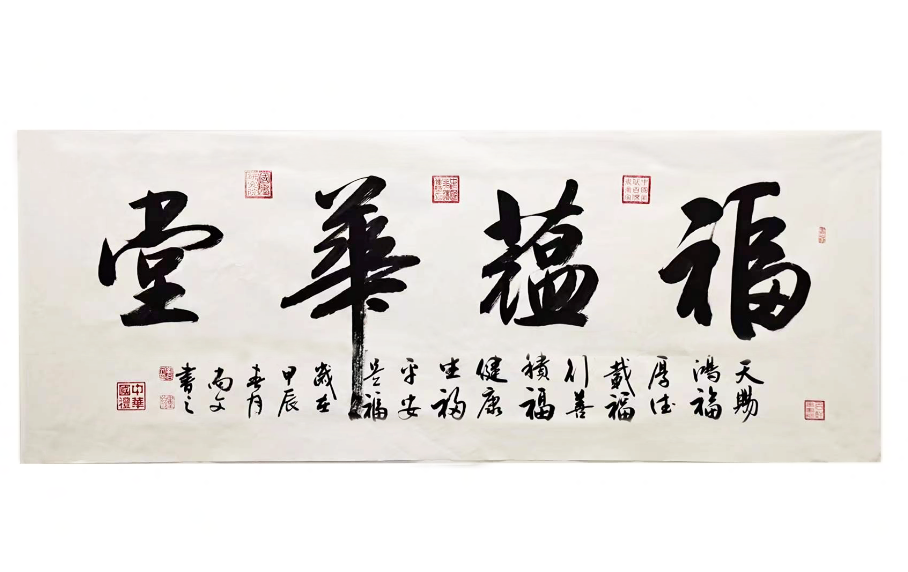 福蘊華堂
天賜
鴻福
厚德
載福
行善
積福
健康
生福
平安
是福
歲在
甲辰
春月
尚文
書之
中華
國禮